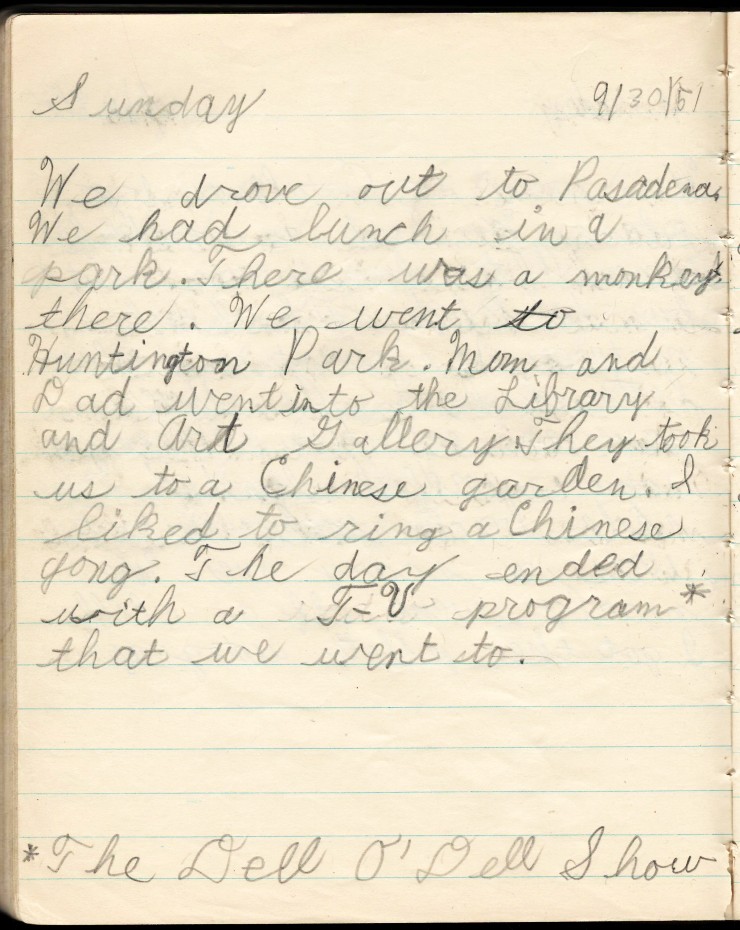 Sunday 9/30/51
We drove out to Pasadena.
We had lunch in a
park. There was a monkey
there. We went to
Huntington Park. Mom and
Dad went into the Library
and Art Gallery. They took
us to a Chinese garden. I
liked to ring a Chinese
gong. The day ended
with a T-V program*
that we went to.
*The Dell O'Dell Show